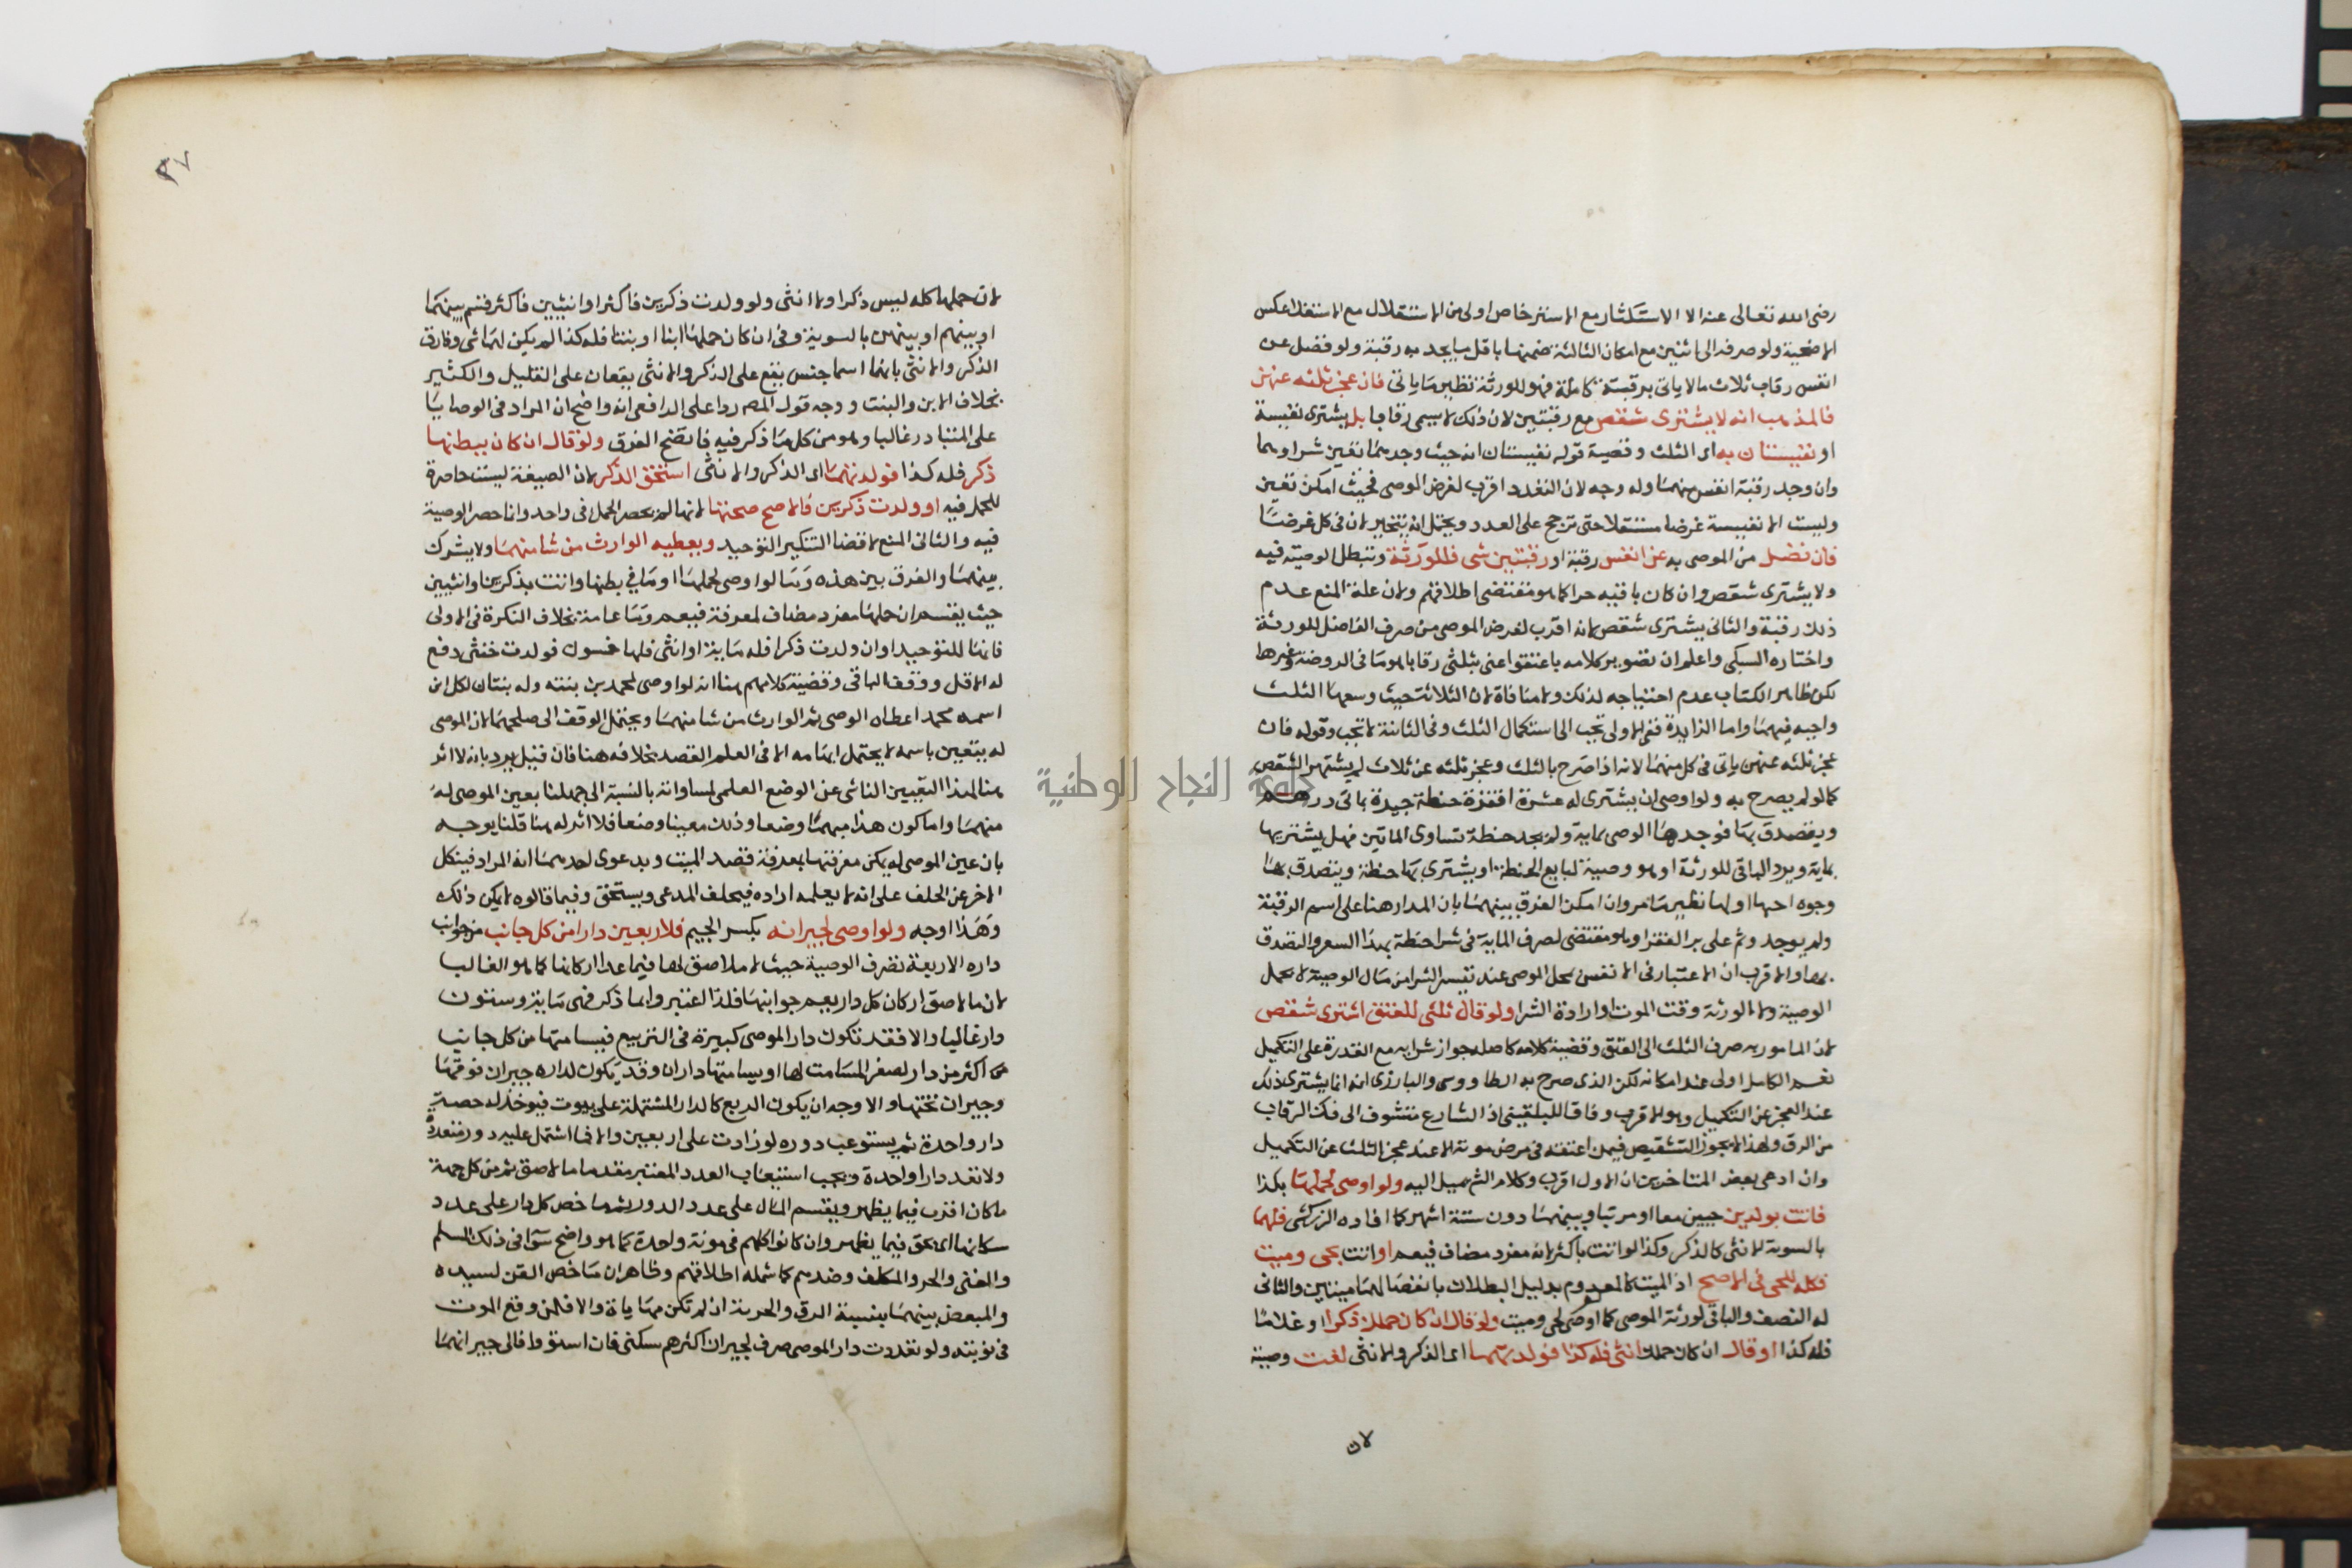 رضى الله تعالى عنه الا الاستكثار مع الاسترخاص اولى من الاستقلال مع الاستغلا عكس
الاضحية ولو صرفه الى اثنين مع امكان الثالثة ضمنها باقل ما يجد به رقبة ولو فضل عن
انفس رقاب ثلاث ما لا ياتى برقبة كاملة فهو للورثة نظير ما ياتى فان عجز ثلثه عنهن
فالمذهب انه لا يشترى شقص مع رقبتين لان ذلك لا يسمى رقابا بل يشترى نفيسة
او نفيستان به اى الثلث وقضية قوله نفيستان انه حيث وجدهما تعين شراوهما
وان وجد رقبة انفس منهما وله وجه لان التعدد اقرب لغرض الموصى فحيث امكن تعين
وليست الانفسية غرضا مستقلا حتى ترجح على العدد ويحتمل انه يتخير لان فى كل غرضا
فان فضل من الموصى به عن انفس رقبة او رقبتين شى فللورثة وتبطل الوصية فيه
ولا يشترى شقص وان كان باقيه حرا كما هو مقتضى اطلاقهم ولان علة المنع عدم
ذلك رقبة والثانى يشترى شقص لانه اقرب لغرض الموصى من صرف الفاضل للورثة
واختاره السبكى واعلم ان تصوير كلامه باعتقوا عنى بثلثى رقابا هو ما فى الروضة وغيرها
لكن ظاهر الكتاب عدم احتياجه لذلك ولا منافاة لان الثلاثة حيث وسعها الثلث
واجبه فيهما واما الزايدة ففى الاولى تجب الى استكمال الثلث وفى الثانية لا تجب وقوله فان
عجز ثلثه عنهن ياتى فى كل منهما لانه اذا صرح بالثلث وعجز ثلثه عن ثلاث لم يشتر الشقص
كما لو لم يصرح به ولو اوصى ان يشترى له عشرة اقفزة حنطة جيدة بماتى درهم
ويتصدق بها فوجدها الوصى بماية ولم يجد حنطة تساوى الماتين فهل يشتريها
بماية ويرد الباقى للورثة او هو وصية لبايع الحنطة او يشترى بها حنطة ويتصدق بها
وجوه احها اولها نظير ما مر وان امكن الفرق بينهما بان المدار هنا على اسم الرقبة
ولم يوجد وثم على بر الفقرا وهو مقتضى لصرف الماية فى شرا حنطة بهذا السعر والتصدق
بها والاقرب ان الاعتبار فى الانفس بمحل الموصى عند تيسر الشرا من مال الوصية لا بمحل
الوصية ولا الورثة وقت الموت او ارادة الشرا ولو قال ثلثى للعتق اشترى شقص
لان المامور به صرف الثلث الى العتق وقضية كلامه كاصله جواز شرايه مع القدرة على التكميل
نعم الكامل اولى عند امكانه لكن الذى صرح به الطاووسى والبارزى انه انما يشترى ذلك
عند العجز عن التكميل وهو الاقرب وفاقا للبلقينى اذ الشارع متشوف الى فك الرقاب
من الرق ولهذا لا يجوز التشقيص فيمن اعتقه فى مرض موته الا عند عجز الثلث عن التكميل
وان ادعى بعض المتاخرين ان الاول اقرب وكلام الشم يميل اليه ولو اوصى لحملها بكذا
فاتت بولدين حيين معا او مرتبا وبينهما دون ستة اشهر كما افاده الزركشى فلهما
بالسوية للانثى كالذكر وكذا لو اتت باكثر لانه مفرد مضاف فيعم او اتت بحى وميت
فكله للحى فى الاصح اذ الميت كالمعدوم بدليل البطلان بانفصالهما ميتين والثانى
له النصف والباقى لورثة الموصى كما لو اوصى لحى وميت ولو قال ان كان حملك ذكرا او غلاما
فله كذا او قال ان كان حملك انثى فله كذا فولدتهما اى الذكر والانثى لغت وصيته
لان
٣٧
لان حملها كله ليس ذكرا ولا انثى ولو ولدت ذكرين فاكثر او انثيين فاكثر قسم بينهما
او بينهم او بينهن بالسوية وفى ان كان حملها ابنا او بنتا فله كذا لم يكن لهما شى وفارق
الذكر والانثى بانهما اسما جنس يقع على الذكر والانثى يقعان على القليل والكثير
بخلاف الابن والبنت ووجه قول المصم ردا على الرافعى انه واضح ان المراد فى الوصايا
على المتبادر غالبا وهو من كل ما ذكر فيه فاتضح الفرق ولو قال ان كان ببطنها
ذكر فله كذا فولدتهما اى الذكر والانثى استحق الذكر لان الصيغة ليست حاصرة
للحمل فيه او ولدت ذكرين فالاصح صحتها لانها لم تحصر الحمل فى واحد وانما حصر الوصية
فيه والثانى المنع لاقتضا التنكير التوحيد ويعطيه الوارث من شا منهما ولا يشرك
بينهما والفرق بين هذه وما لو اوصى لحملها او ما فى بطنها واتت بذكرين او انثيين
حيث يقسم ان حملها مفرد مضاف لمعرفة فيعم وما عامة بخلاف النكرة فى الاولى
فانها للتوحيد او ان ولدت ذكرا فله ماية او انثى فلها خمسون فولدت خنثى دفع
له الاقل ووقف الباقى وقضية كلامهم هنا انه لو اوصى لمحمد بن بنته وله بنتان لكل ابن
اسمه محمد اعطاه الوصى ثم الوارث من شا منهما ويحتمل الوقف الى صلحهما لان الموصى
له يتعين باسمه لا يحتمل ابهامه الا فى العلم القصد بخلافه هنا فان قيل يرد بانه لا اثر
هنا لهذا التعيين الناشى عن الوضع العلمى لمساواته بالنسبة الى جهلنا بعين الموصى له
منهما واما كون هذا مبهما وضعا وذلك معينا وضعا فلا اثر له هنا قلنا يوجه
بان عين الموصى له يمكن معرفتها بمعرفة قصد الميت وبدعوى احدهما انه المراد فينكل
الاخر عن الحلف على انه لا يعلمه اراده فيحلف المدعى ويستحق وفيما قالوه لا يمكن ذلك
وهذا اوجه ولو اوصى لجيرانه بكسر الجيم فلاربعين دارا من كل جانب من جوانب
داره الاربعة تصرف الوصية حيث لا ملاصق لها فيما عدا اركانها كما هو الغالب
لان ما لاصق اركان كل دار يعم جوانبها فلذا اعتبر وانما ذكر فهى ماية وستون
دارا غالبا والا فقد تكون دار الموصى كبيرة فى التربيع فيسامتها من كل جانب
اكثر من دار لصغر المسامت لها او يسامتها داران وقد يكون لداره جيران فوقها
وجيران تحتها والاوجه ان يكون الربع كالدار المشتملة على بيوت فيوخذ له حصة
دار واحدة ثم يستوعب دوره لو زادت على اربعين والا فما اشتمل عليه دور متعددة
ولا تعد دارا واحدة ويجب استيعاب العدد المعتبر مقدما ما لاصق ثم من كل جهة
ما كان اقرب فيما يظهر ويقسم المال على عدد الدور ثم ما خص كل دار على عدد
سكانها اى بحق فيما يظهر وان كانوا كلهم فى مونة واحدة كما هو واضح سوا فى ذلك المسلم
والغنى والحر والمكلف وضدهم كما شمله اطلاقهم وظاهر ان ما خص القن لسيده
والمبعض بينهما بنسبة الرق والحرية ان لم تكن مهاياة والا فلمن وقع الموت
فى نوبته ولو تعددت دار الموصى صرف لجيران اكثرهم سكنى فان استووا فالى جيرانهما
جامعة النجاح الوطنية